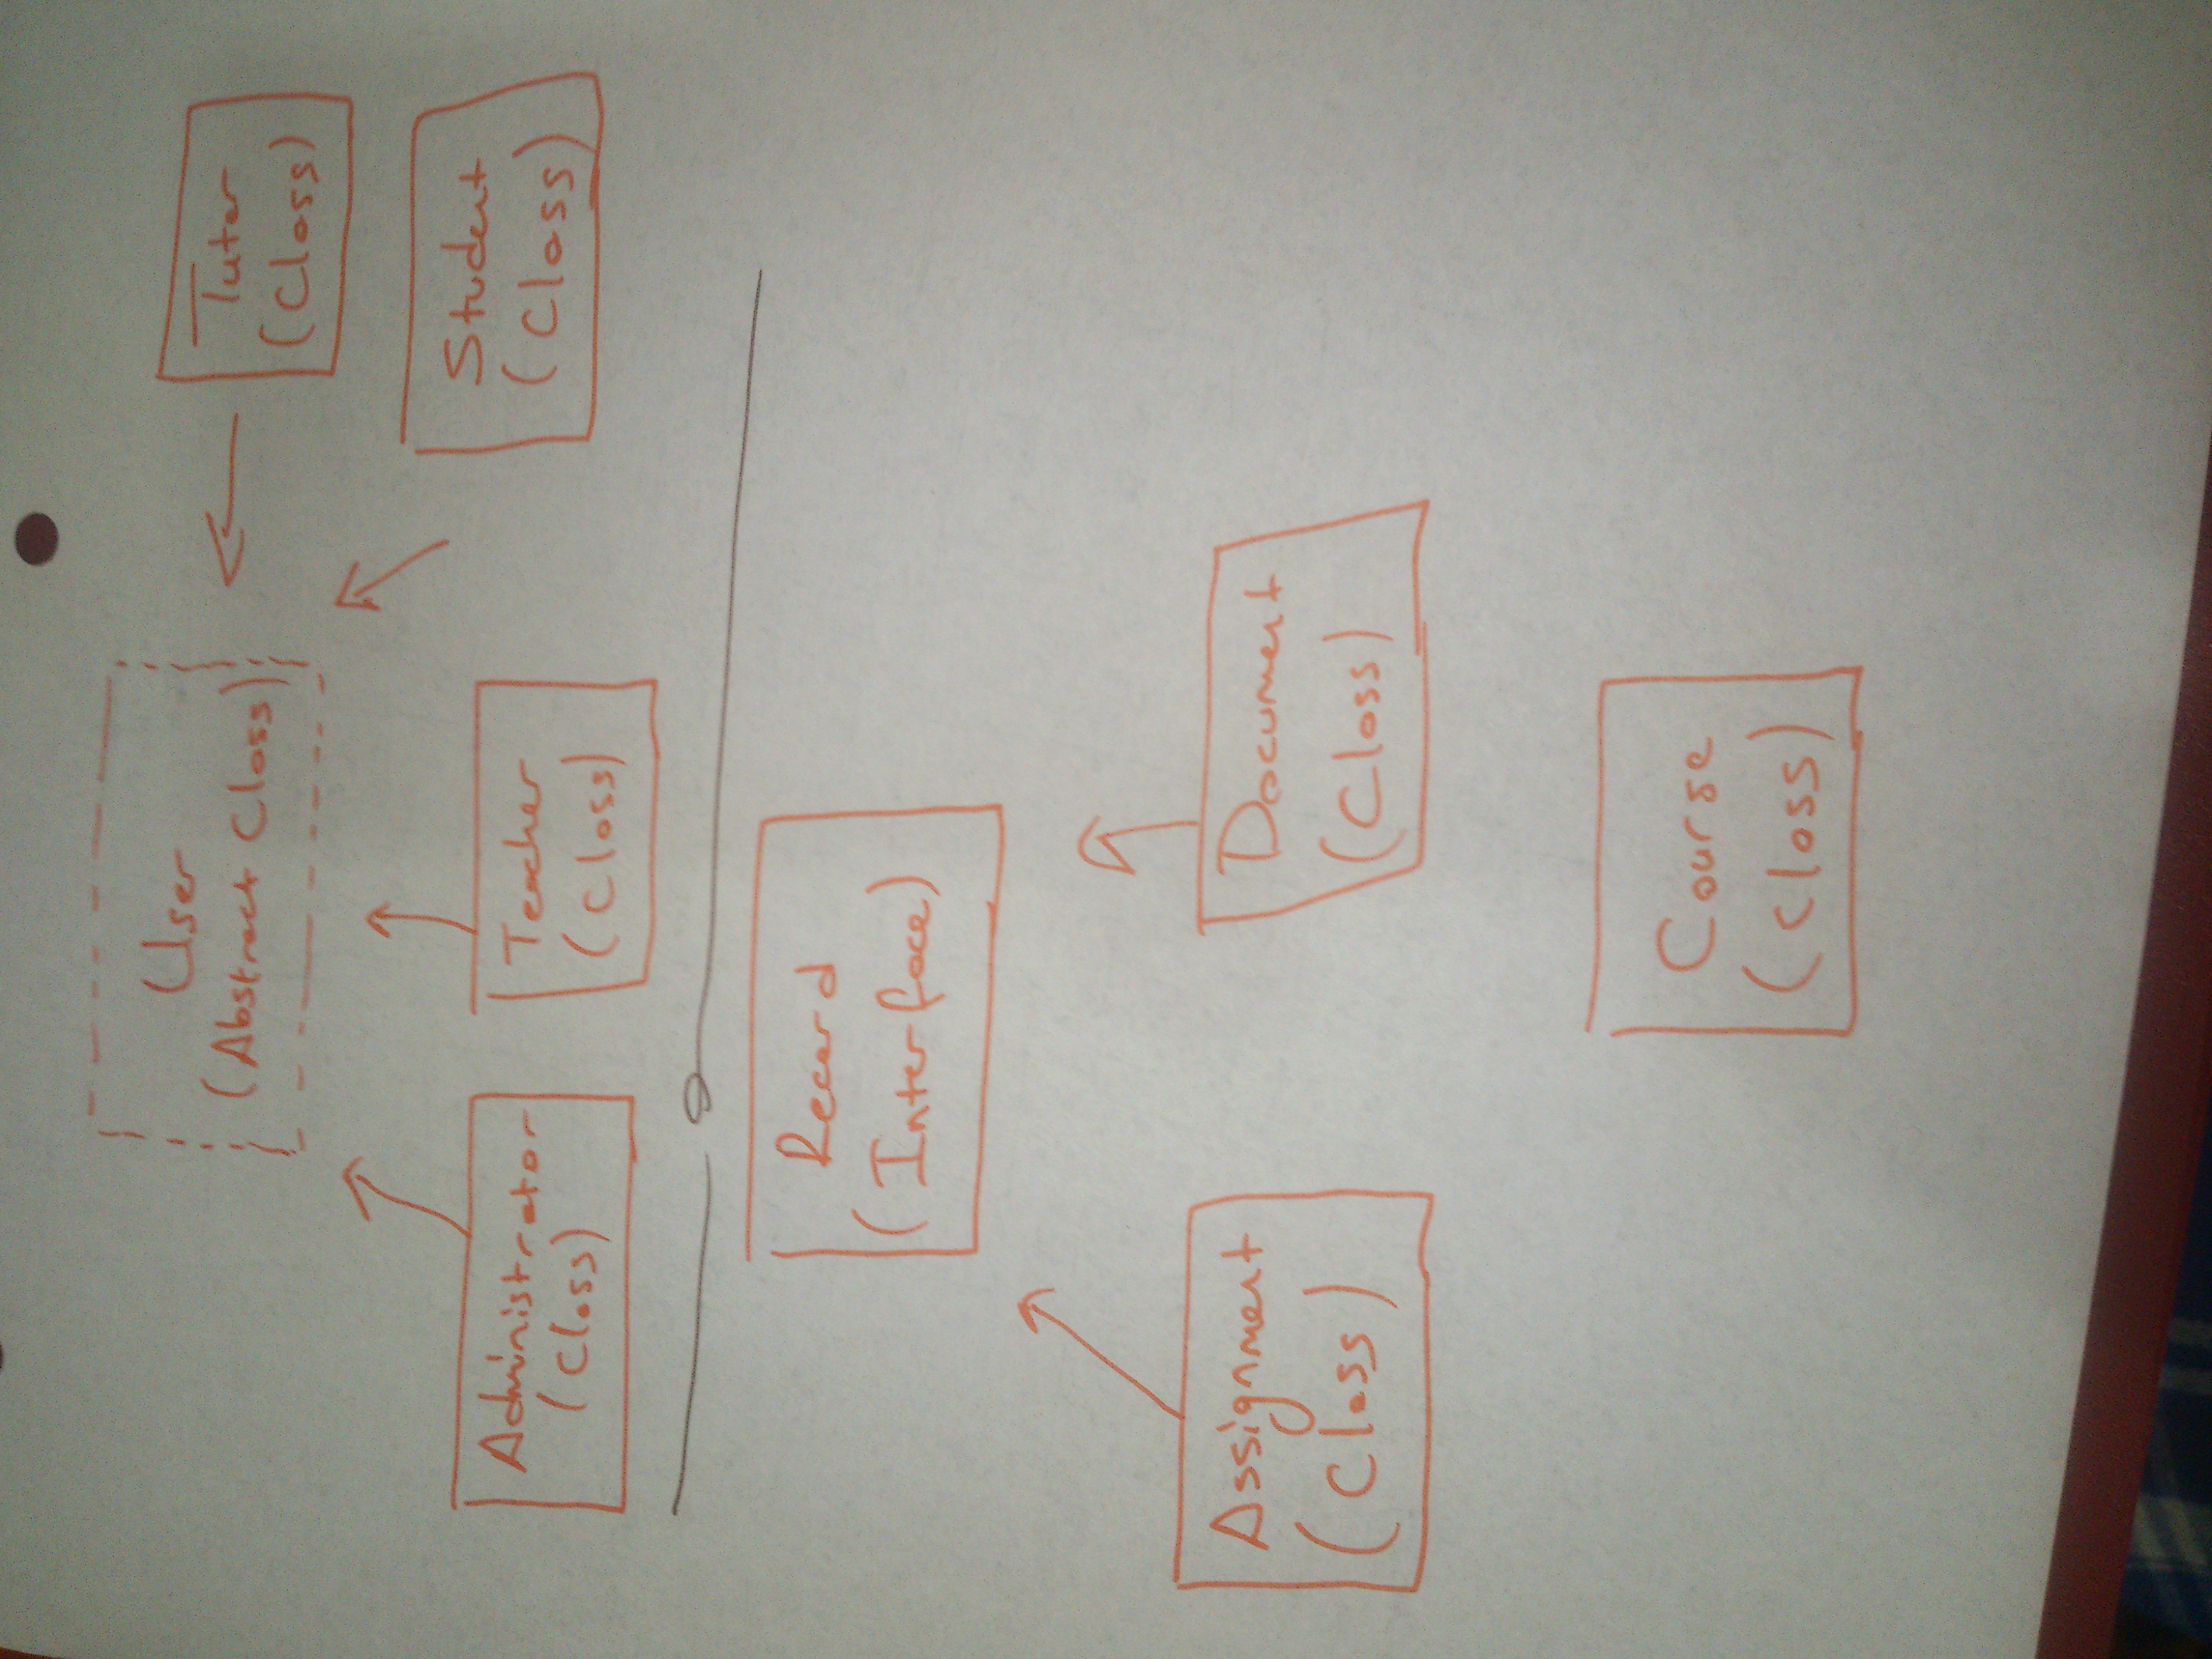 User
(Abstract Class)
Tutor
(Class)
Administrator
(Class)
Teacher
(Class)
Student
(Class)
Record
(Interface)
Assignment
(Class)
Document
(Class)
Course
(Class)